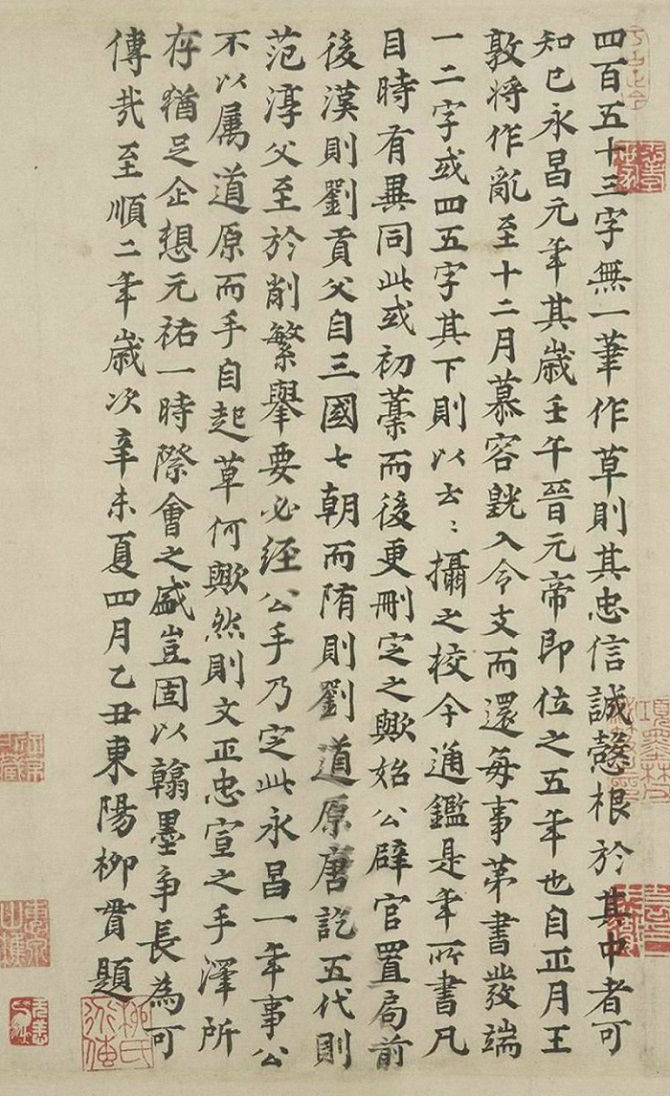 四百五十三字無一筆作草則其忠信誠慤根於其中者可
知已永昌元年其歲壬午晉元帝即位之五年也自正月王
敦將作亂至十二月慕容皝入令支而還每事第書發端
一二字或四五字其下則以云〻攝之校今通鑑是年所書凡
目時有異同此或初藁而後更刪定之歟始公辟官置局前
後漢則劉貢父自三國七朝而隋則劉道原唐訖五代則
范淳父至於削繁舉要必經公手乃定此永昌一年事公
不以屬道原而手自起草何歟然則文正忠宣之手澤所
存猶足企想元祐一時際會之盛豈固以翰墨爭長為可
傳哉至順二年歲次辛未夏四月乙丑東陽柳貫題